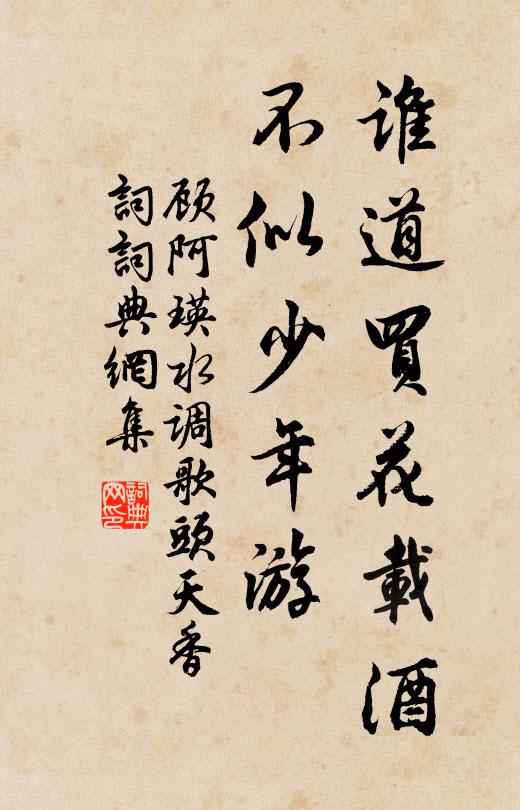 誰道買花載酒
不似少年游
顾阿瑛水调歌頭天香
詞詞典網集
詞典网印